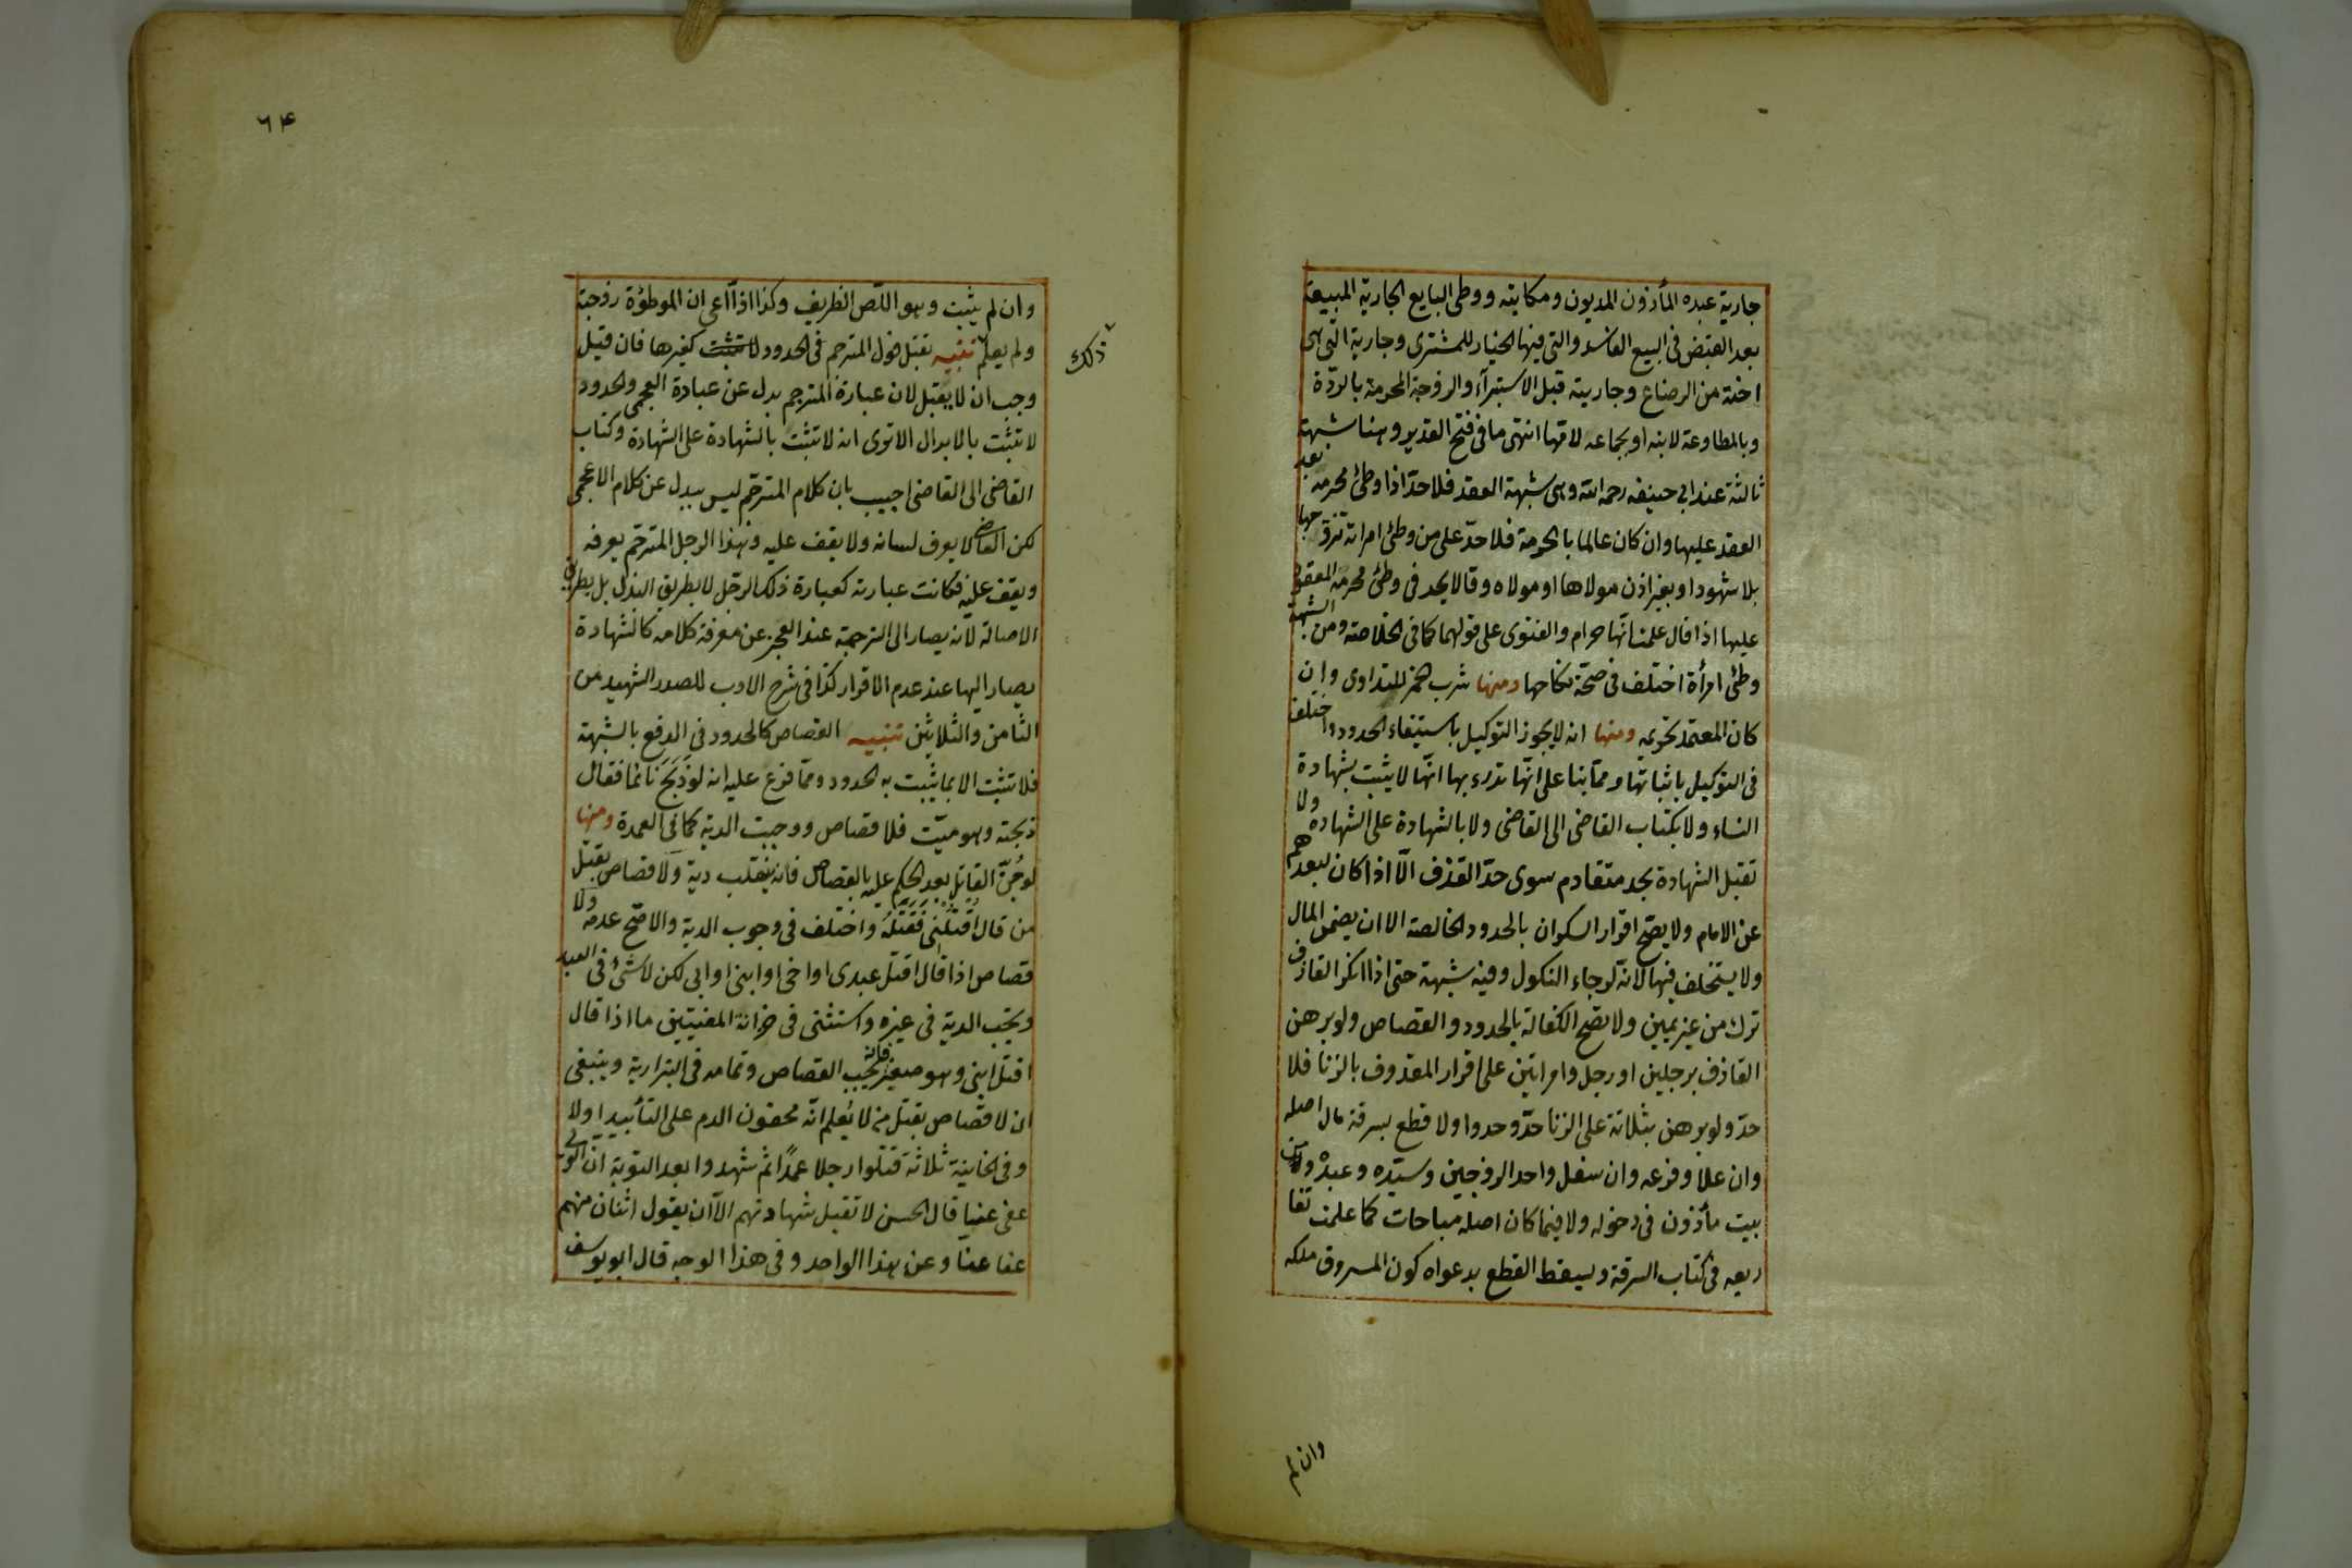 جارية عبده المأذون المديون ومكاتبه ووطى البايع الجارية المبيعة
بعد القبض فى البيع الفاسد والتى فيها الخيار للمشترى وجارية التى هى
اخته من الرضاع وجاريته قبل الاستبرآء والزوجة المحرمة بالردّة
وبالمطاوعة لابنه او بجماعه لامّها انتهى ما فى فتح القدير وهنا شبهة
ثالثة عند ابى حنيفه رحمه الله وهى شبهة العقد فلا حدّ اذا وطئ محرمه بعد
العقد عليها وان كان عالما بالحرمة فلا حدّ على من وطئ امراة تزوّجها
بلا شهود او بغير اذن مولاها او مولاه وقالا يحد فى وطئ محرمه المعقود
عليها اذا قال علمت انّها حرام والفتوى على قولهما كما فى الخلاصة ومن الشبهة
وطئ امرأة اختلف فى صحّة نكاحها ومنها شرب خمر للتداوى وان
كان المعتمد تحريمه ومنها انه لا يجوز التوكيل باستيفاء الحدود واختلف
فى التوكيل باثباتها وممّا بنا على انّها تدرء بها انّها لا يثبت بشهادة
النساء ولا بكتاب القاضى الى القاضى ولا بالشهادة على الشهادة ولا
تقبل الشهادة بحد متقادم سوى حدّ القذف الّا اذا كان لبعدهم
عن الامام ولا يصحّ اقرار السكران بالحدود الخالصة الا ان يضمن المال
ولا يستحلف فيها لانه لرجاء النكول وفيه شبهة حتى اذا انكر القاذف
ترك من غير يمين ولا تصح الكفالة بالحدود والقصاص ولو برهن
القاذف برجلين او رجل وامراتين على اقرار المقذوف بالزنا فلا
حدّ ولو برهن بثلاثة على الزنا حدّ وحدوا ولا قطع بسرقة مال اصله
وان علا وفرعه وان سفل واحد الزوجين وسيّده وعبده ومن
بيت مأذون فى دخوله ولا فيما كان اصله مباحات كما علمت تفا
ريعه فى كتاب السرقة ويسقط القطع بدعواه كون المسروق ملكه
وان لم
٦٤
وان لم يثبت وهو اللّص الظريف وكذا اذا ادّعى ان الموطؤة زوجته
ولم يعلم تنبيه يقبل قول المترجم فى الحدود كغيرها فان قيل
ذلك
وجب ان لا يقبل لان عبارة المترجم بدل عن عبارة العجمى والحدود
لا تثبت بالابدال الا ترى انه لا تثبت بالشهادة على الشهادة وكتاب
القاضى الى القاضى اجيب بان كلام المترجّم ليس ببدل عن كلام الاعجمى
لكن القاضى لا يعرف لسانه ولا يقف عليه وهذا الرجل المترجّم يعرفه
ويقف عليه فكانت عبارته كعبارة ذلك الرجّل لا بطريق البدل بل بطريق
الاصالة لانّه يصار الى الترجمة عند العجز عن معرفة كلامه كالشهادة
يصار اليها عند عدم الاقرار كذا فى شرح الادب للصدر الشهيد من
الثامن والثلاثين تنبيه القصاص كالحدود فى الدفع بالشبهة
فلا تثبت الا بما يثبت به الحدود وممّا فرع عليه انه لو ذَبَحَ نائما فقال
ذبحته وهو ميّت فلا قصاص ووجبت الدية كما فى العمدة ومنها
لو جُنّ القاتل بعد الحكم عليه بالقصاص فانه ينقلب دية ولا قصاص بقتل
من قال اُقتلنى فقتله واختلف فى وجوب الدية والاصّح عدمه ولا
قصاص اذا قال اقتل عبدى او اخى او ابنى او ابى لكن لا شئ فى العبد
وتجب الدية فى غيره واستثنى فى خزانة المفتيين ما اذا قال
اقتل ابنى وهو صغير فانه يجب القصاص وتمامه فى البزازية وينبغى
ان لا قصاص بقتل من لا يُعلم انّه محقون الدم على التأبيد اولا
وفى الخانية ثلاثة قتلوا رجلا عمدًا ثم شهدوا بعد التوبة انّ الولى
عفى عنّا قال الحسن لا تقبل شهادتهم الا ان يقول اثنان منهم
عفا عنّا وعن هذا الواحد وفى هذا الوجه قال ابو يوسف